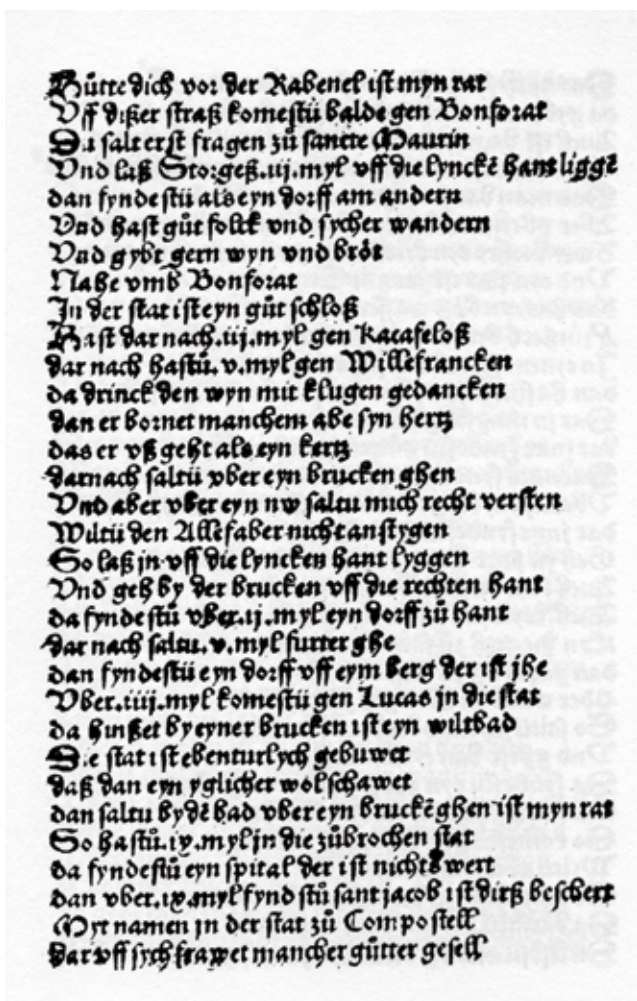 Hütte dich vor der Rabenel ist myn rat
Vff dißer straß komestü balde gen Bonforat
Du salt erst fragen zü sancte Maurin
Vnd laß Storgeß .iij. myl vff die lynckē hant liggē
dan fyndestü als eyn dorff am andern
Vnd hast güt folck vnd sycher wandern
Vnd gybt gern wyn vnd bröt
Nahe vmb Bonforat
In der stat ist eyn güt schloß
Hast dar nach .iij. myl gen Kacafeloß
dar nach hastü .v. myl gen Willefrancken
da drinck den wyn mit klugen gedancken
dan er bornet manchem abe syn hertz
das er vß geht als eyn kertz
darnach saltü vber eyn brucken ghen
Vnd aber vber eyn nw saltu mich recht versten
Wiltü den Allefaber nicht anstygen
So laß in vff die lyncken hant lyggen
Vnd geh by der brucken vff die rechten hant
da fyndestü vber .ij. myl eyn dorff zü hant
dar nach saltu .v. myl furter ghe
dan fyndestü eyn dorff vff eym berg der ist jhe
Vber .iiij. myl komestü gen Lucas jn die stat
da hinßet by eyner brucken ist eyn wiltbad
Die stat ist ebenturlych gebuwet
daß dan eyn yglicher wol schawet
dan saltu by dē bad vber eyn bruckē ghen ist myn rat
So hastü .ix. myl jn die zübrochen stat
da fyndestü eyn spital der ist nichts wert
dan vber .ix. myl fyndstü sant jacob ist dirß beschert
Myt namen jn der stat zü Compostell
dar vff sych frawet mancher gütter gesell